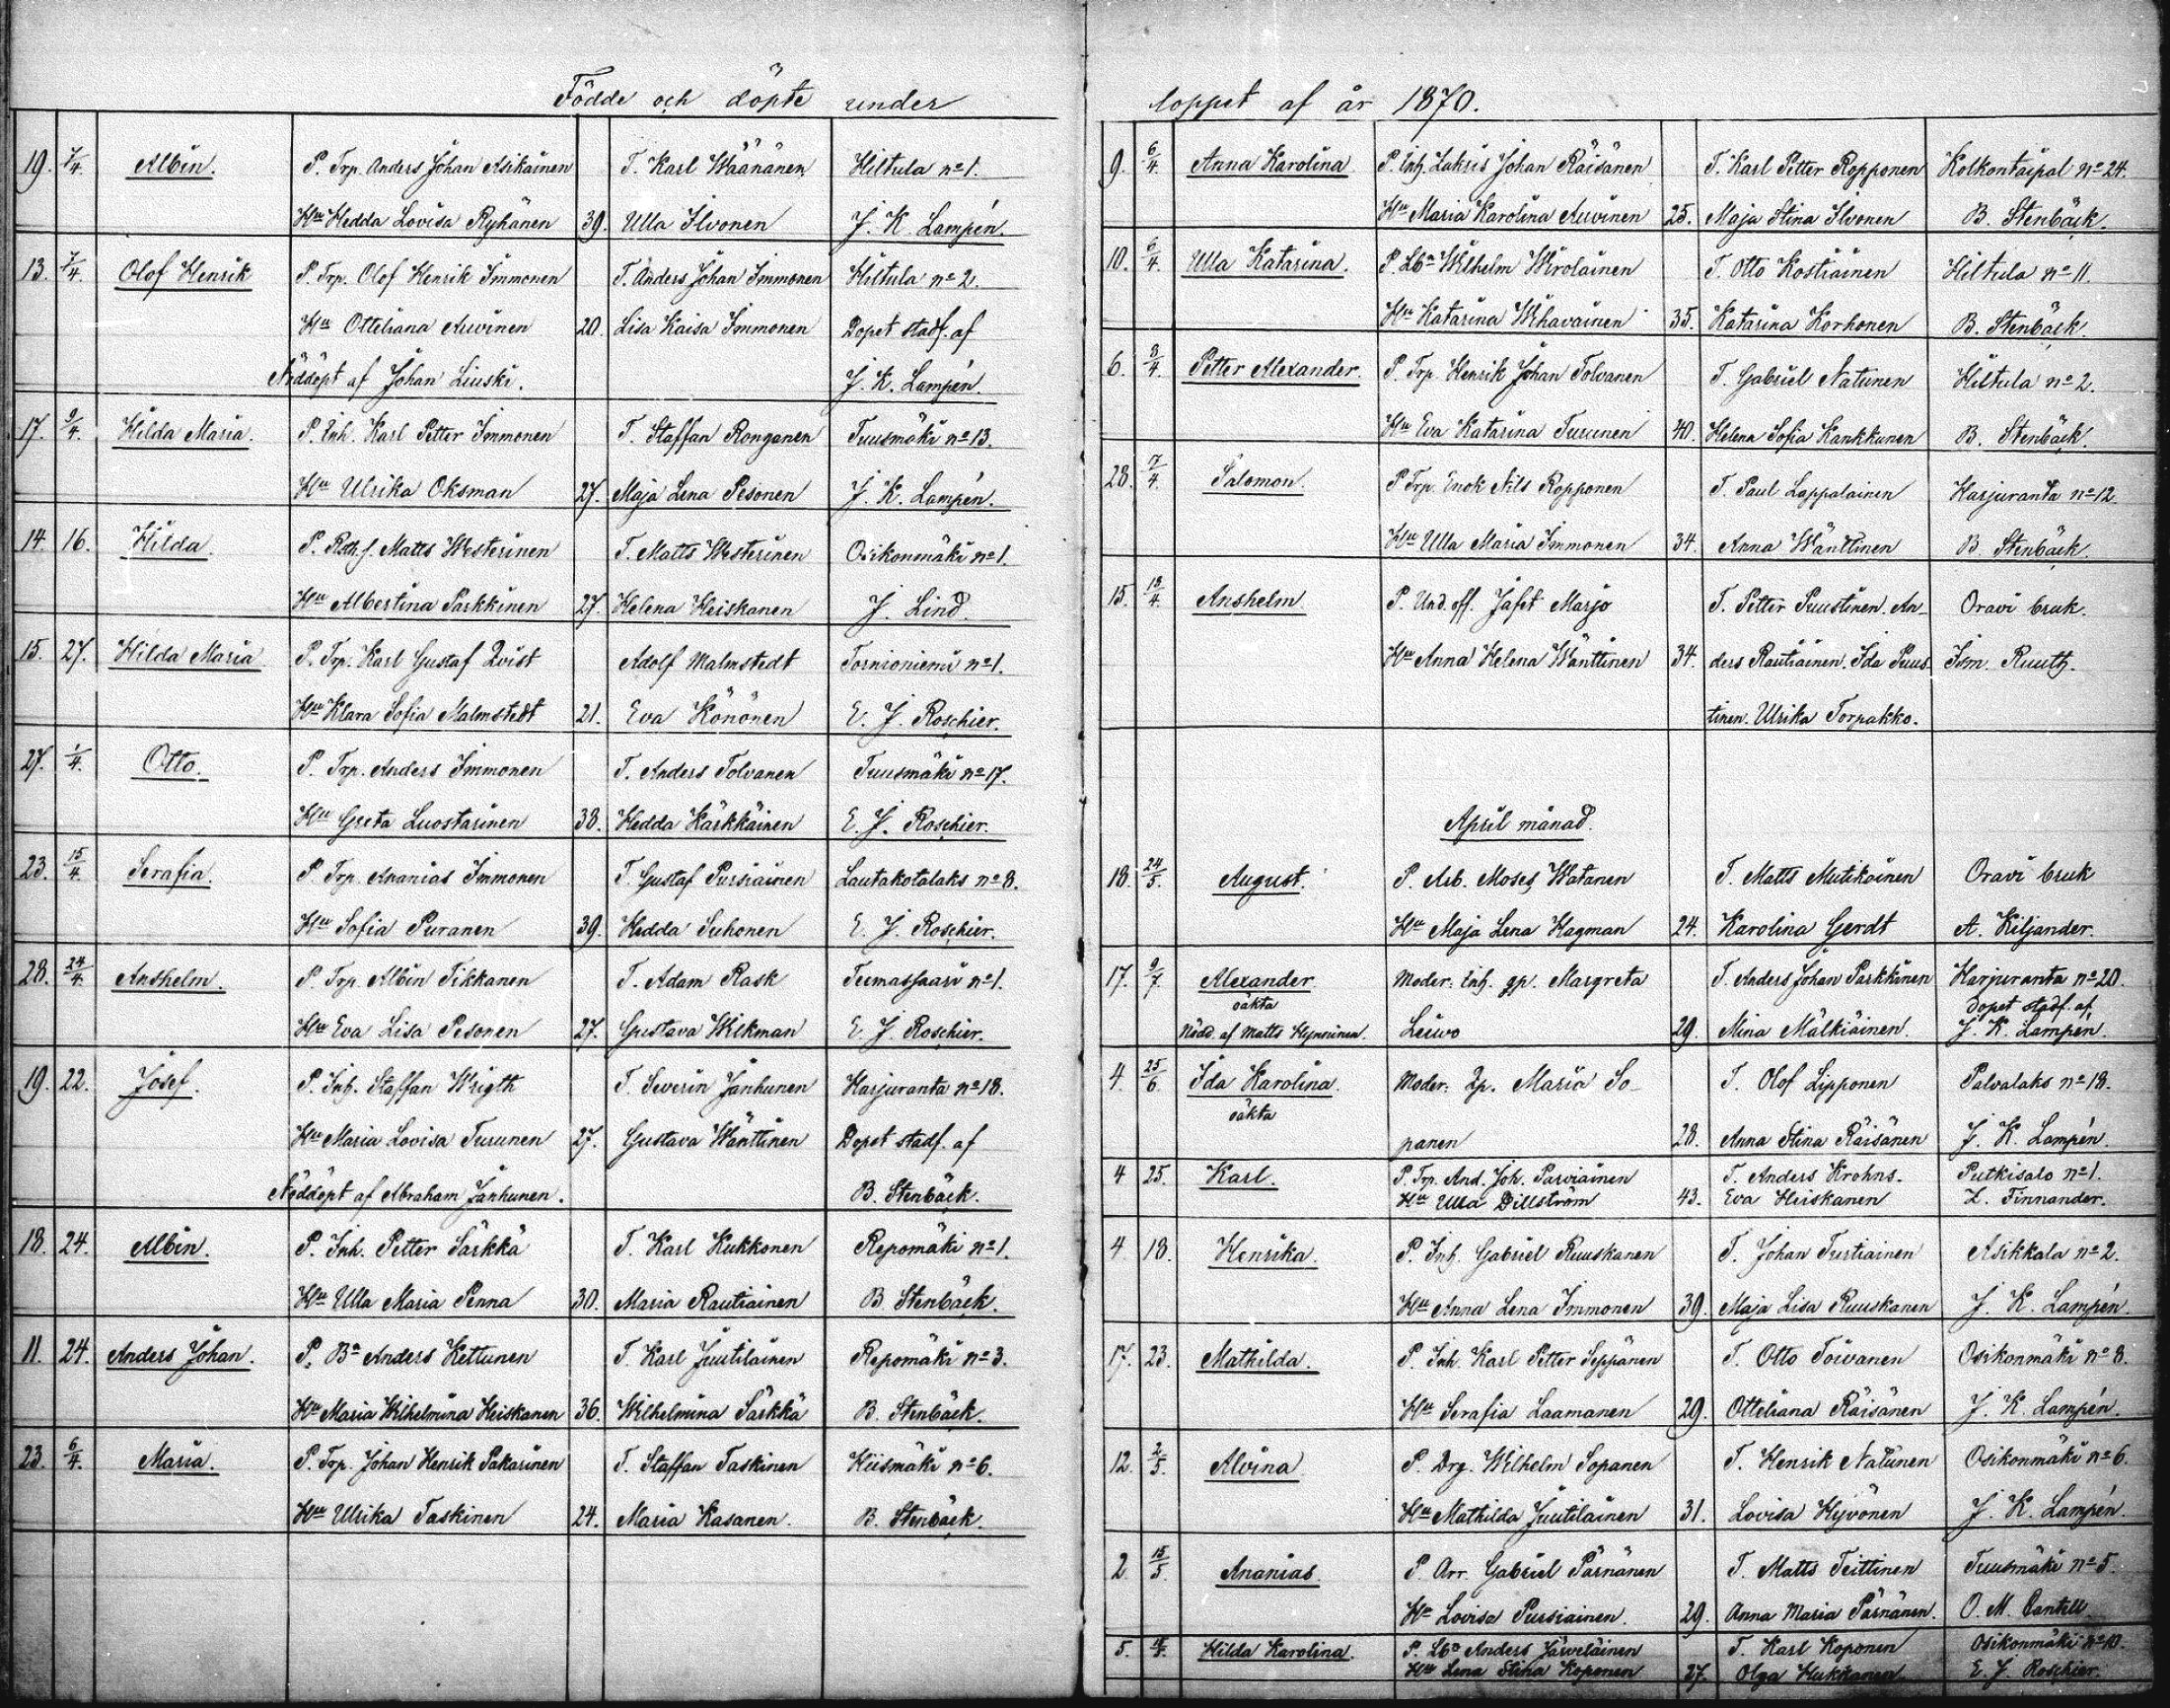 Födde och döpte under
19. 7/4. Albin. P. Trp. Anders Johan Asikainen T. Karl Wäänänen Hiltula no 1.
Hu Hedda Lovisa Ryhänen 39. Ulla Ilvonen J. K. Lampén.
13. 7/4. Olof Henrik P. Trp. Olof Henrik Immonen T. Anders Johan Immonen Hiltula no 2.
Hu Otteliana Auvinen 20. Lisa Kaisa Immonen Dopet stadf. af
Nöddöpt af Johan Liuski. J. K. Lampén.
17. 9/4. Hilda Maria. P. Inh. Karl Petter Immonen T. Staffan Ronganen Tuusmäki no 13.
Hu Ulrika Oksman 27. Maja Lena Pesonen J. K. Lampén.
14. 16. Hilda. P. Rsth.f. Matts Westerinen T. Matts Westerinen Osikonmäki no 1.
Hu Albertina Parkkinen 27. Helena Heiskanen J. Lind.
15. 27. Hilda Maria P. Trp. Karl Gustaf Qvist Adolf Malmstedt Tornioniemi no 1.
Hu Klara Sofia Malmstedt 21. Eva Könönen E. J. Roschier.
27. 1/4. Otto. P. Trp. Anders Immonen T. Anders Tolvanen Tuusmäki no 17.
Hu Greta Luostarinen 38. Hedda Kärkkäinen E. J. Roschier.
23. 15/4. Serafia. P. Trp. Ananias Immonen T. Gustaf Pursiainen Lautakotalaks no 8.
Hu Sofia Puranen 39. Hedda Suhonen E. J. Roschier.
28. 24/4. Anshelm. P. Trp. Albin Tikkanen T. Adam Rask Teemassaari no 1.
Hu Eva Lisa Pesonen 27. Gustava Wilkman E. J. Roschier.
19. 22. Josef. P. Inh. Staffan Wrigth T. Severin Janhunen Harjuranta no 18.
Hu Maria Lovisa Turunen 27. Gustava Wänttinen Dopet stadf. af
Nöddöpt af Abraham Janhunen. B. Stenbäck.
18. 24. Albin. P. Inh. Petter Särkkä T. Karl Kukkonen Repomäki no 1.
Hu Ulla Maria Penna 30. Maria Rautiainen B Stenbäck.
11. 24. Anders Johan. P. Bn Anders Kettunen T. Karl Juutilainen Repomäki no 3.
Hu Maria Wilhelmina Heiskanen 36. Wilhelmina Särkkä B. Stenbäck.
23. 6/4. Maria. P. Trp. Johan Henrik Pakarinen T. Staffan Taskinen Hiismäki no 6.
Hu Ulrika Taskinen 24. Maria Kasanen. B. Stenbäck.
loppet af år 1870.
9. 6/4. Anna Karolina P. Inh. Zakris Johan Räisänen T. Karl Petter Ropponen Kolkontaipal no 24.
Hu Maria Karolina Auvinen 25. Maja Stina Ilvonen B. Stenbäck.
10. 6/4. Ulla Katarina. P. Lbn Wilhelm Wirolainen T. Otto Kostiainen Hiltula no 11.
Hu Katarina Wihavainen 35. Katarina Korhonen B. Stenbäck.
6. 8/4. Petter Alexander. P. Trp. Henrik Johan Tolvanen T. Gabriel Natunen Hiltula no 2.
Hu Eva Katarina Turunen 40. Helena Sofia Kankkunen B. Stenbäck.
28. 7/4. Salomon. P Trp. Enok Nils Ropponen T. Paul Lappalainen Harjuranta no 12
Hu Ulla Maria Immonen 34. Anna Wänttinen B. Stenbäck.
15. 18/4. Anshelm P. Und.off. Jafet Marjo T. Petter Puustinen. An- Oravi bruk.
Hu Anna Helena Wänttinen 34. ders Rautiainen. Ida Puus- Ism. Ruuth.
tinen. Ulrika Torpakko.
April månad.
18. 24/5. August. P. Arb. Moses Watanen T. Matts Mutikainen Oravi bruk
Hu Maja Lena Hagman 24. Karolina Gerdt A. Kiljander.
17. 9/7. Alexander. Moder: Inh. gp. Margreta T. Anders Johan Parkkinen Harjuranta no 20.
oäkta Dopet stadf. af
Nödd. af Matts Hynninen. Leiwo 29. Mina Mälkiäinen. J. K. Lampén.
4. 25/6. Ida Karolina. Moder: Qp. Maria So- T. Olof Lipponen Palvalaks no 18.
oäkta
panen 28. Anna Stina Räisänen J. K. Lampén.
4 25. Karl. P. Trp. And. Joh. Parviainen T. Anders Krohns. Putkisalo no 1.
Hu Ulla Dillström 43. Eva Heiskanen Z. Finnander.
4 18. Henrika. P. Inh. Gabriel Ruuskanen T. Johan Turtiainen Asikkala no 2.
Hu Anna Lena Immonen 39. Maja Lisa Ruuskanen J. K. Lampén.
17. 23. Mathilda. P. Inh. Karl Petter Seppänen T. Otto Toivanen Osikonmäki no 8.
Hu Serafia Laamanen 29. Otteliana Räisänen J. K. Lampén.
12. 2/5. Alvina. P. Drg. Wilhelm Sopanen T. Henrik Natunen Osikonmäki no 6.
Hu Mathilda Juutilainen 31. Lovisa Hyvönen J. K. Lampén.
2. 15/5. Ananias. P. Arr. Gabriel Pärnänen T. Matts Teittinen Tuusmäki no 5.
Hu Lovisa Pursiainen. 29. Anna Maria Pärnänen. O. M. Cantell
5. Hilda Karolina. P. Lbn Anders Järveläinen T. Karl Koponen Osikonmäki no 10.
Hu Lena Stina Koponen 27. Olga Hukkanen. E. J. Roschier.